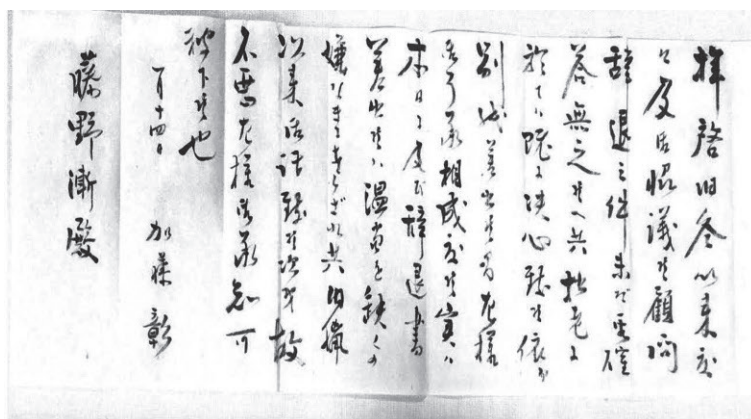 拝啓旧冬以来度
々及御協議候顧問
辞退之件未だ確
答無之候へ共拙老ニ
於てハ既ニ決心致候依而
別紙差出候間左様
御了承相成度候実ハ
本日ニ及び辞退書
差出候ハ温当を缺くの
嫌なきにあらざれ共旧臘
以来御話致候次第故
不悪左様御承知可
被下候也
一月十四日 加藤彰
藤野漸殿